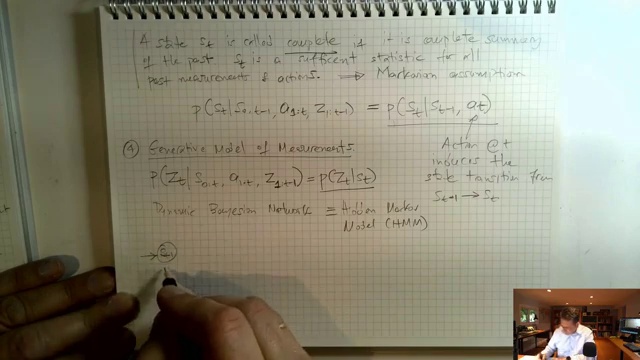 A state St is called complete if it is complete summary
of the past St is a sufficent statistic for all
past measurements & actions. ⟹ Markovian assumption
p(St|S0:t-1, a1:t, Z1:t-1) = p(St|St-1, at)
Action @t
induces the
state transition from
St-1 → St
④ Generative Model of Measurements
p(Zt|S0:t, a1:t, Z1:t-1) = p(Zt|St)
Dynamic Bayesian Network ≡ Hidden Markov
Model (HMM)
→